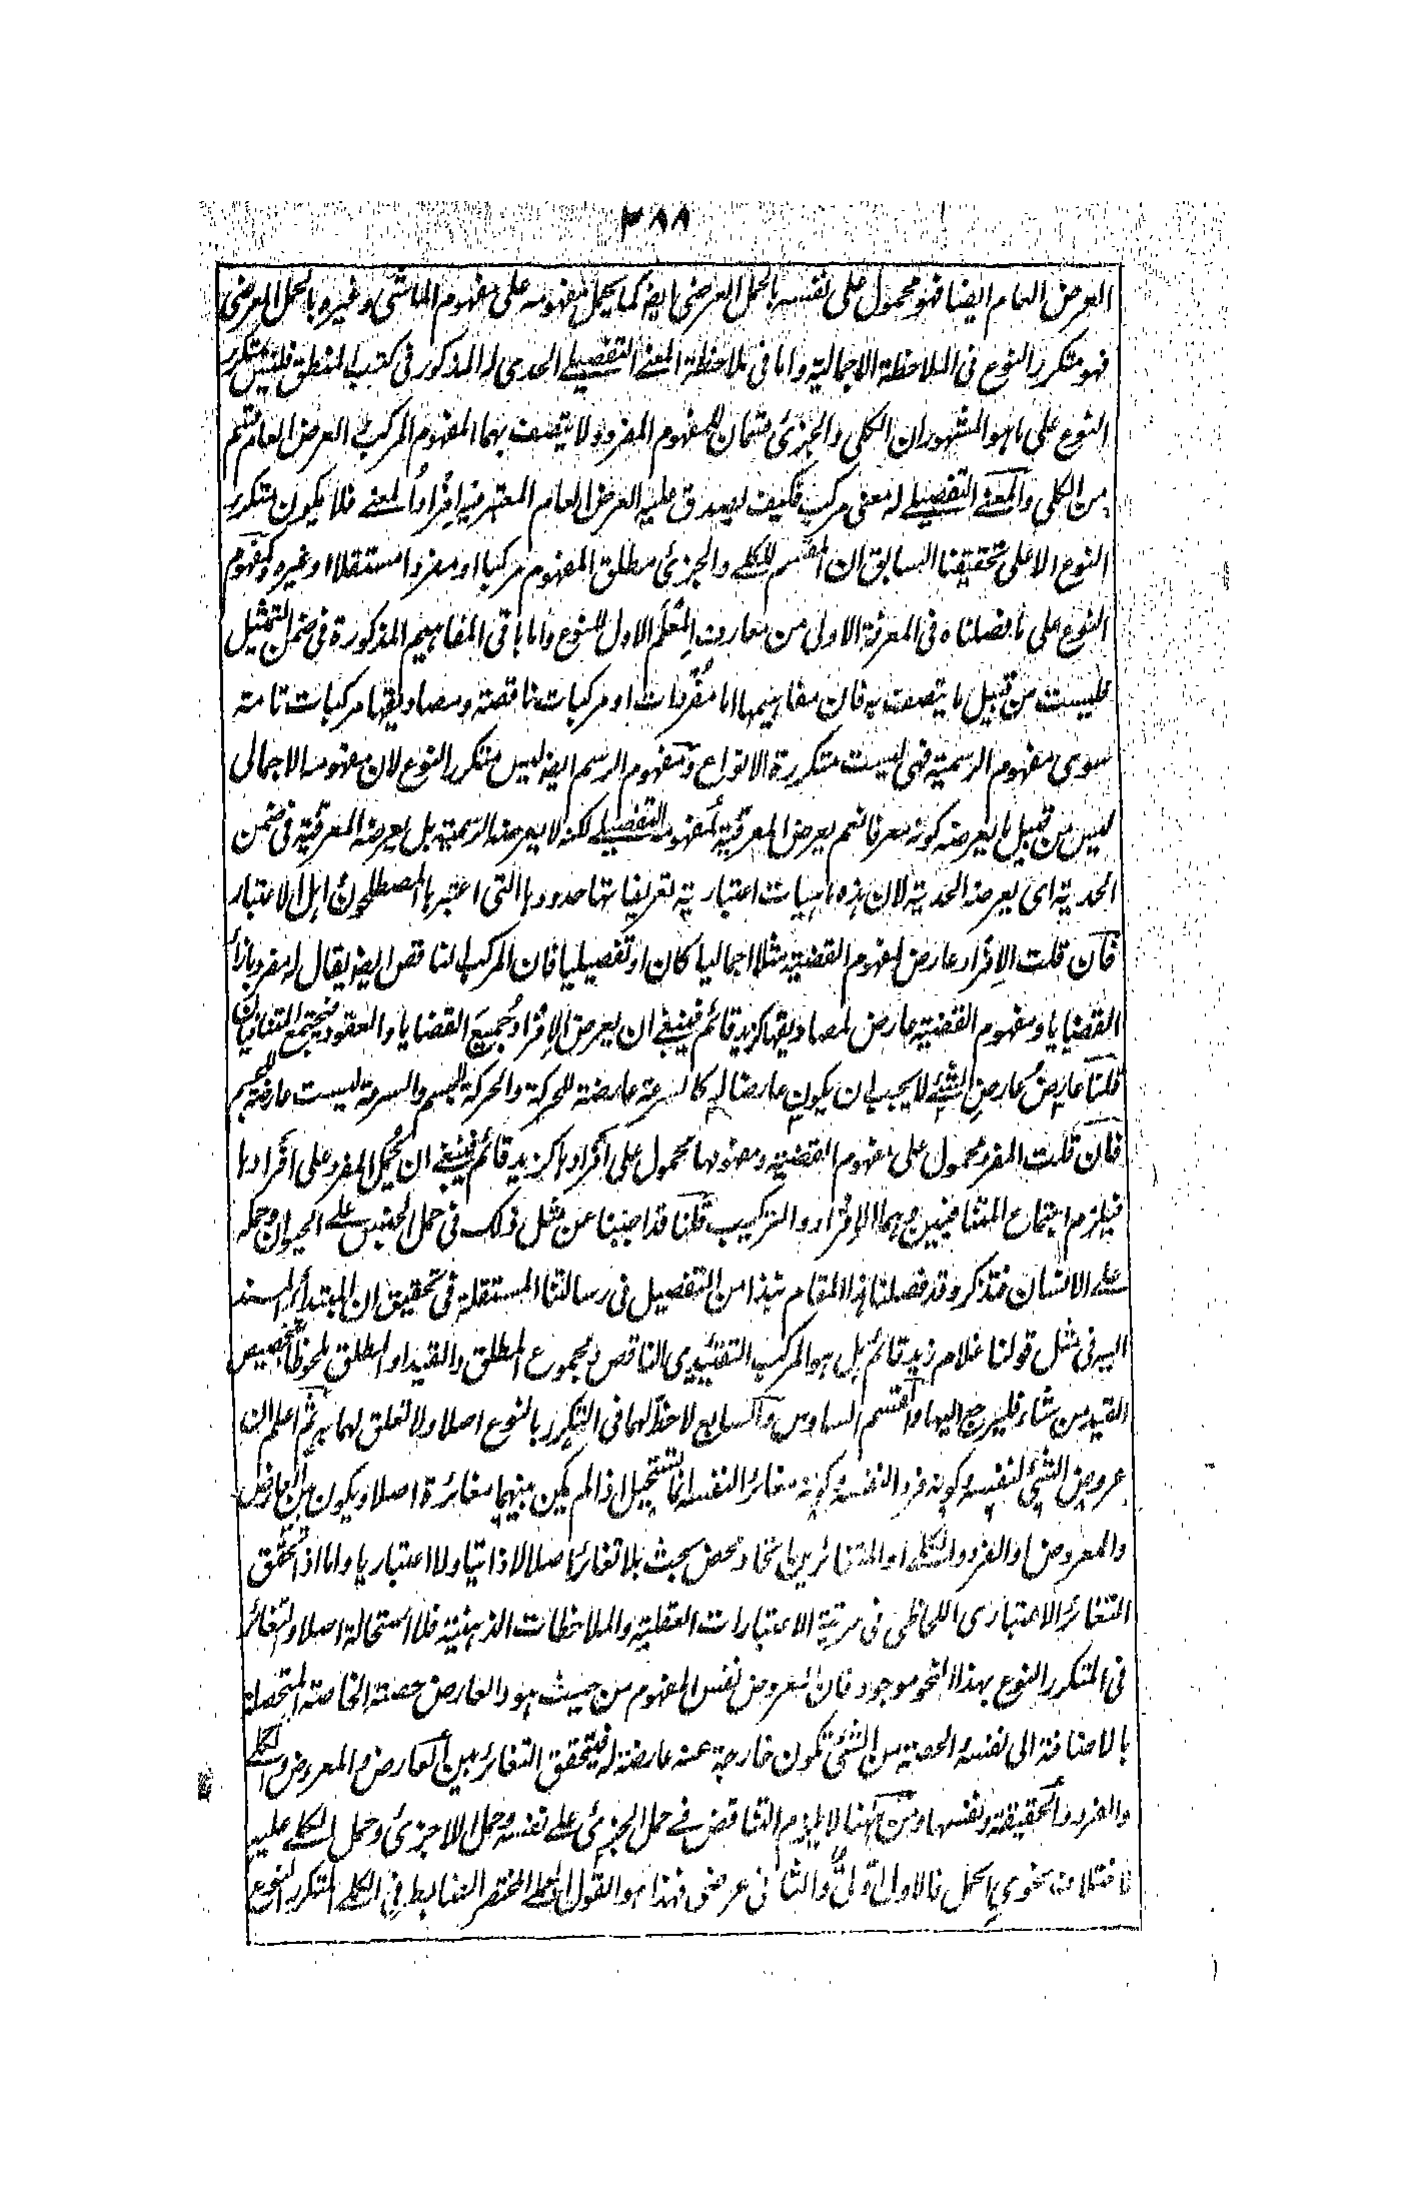 ٣٨٨
العرض العام ايضا فهو محمول على نفسه بالحمل العرضى ايضا كما يحمل مفهومه على مفهوم الماشى وغيره بالحمل العرضى
فهو متكرر النوع فى الملاحظة الاجمالية واما فى ملاحظة المعنے التفصيلے الحدى له المذكور فى كتب المنطق فليس متكرر
النوع على ما هو المشهور ان الكلى والجزئى قسمان للمفهوم المفرد ولا يتصف بهما المفهوم المركب والعرض العام قسم
من الكلى والمعنے التفصيلے له معنى مركب فكيف يصدق عليه العرض العام المعتبر فيه افراد المعنے فلا يكون متكرر
النوع الا على تحقيقنا السابق ان المقسم للكلے والجزئى مطلق المفهوم مركبا او مفردا مستقلا او غيره ومفهوم
النوع على ما فصلناه فى المعرفة الاولى من معارف المعلم الاول للنوع واما باقى المفاهيم المذكورة فى ضمن التمثيل
فليست من قبيل ما يتصف به فان مفاهيمها اما مفردات او مركبات ناقصة ومصاديقها مركبات تامة
سوى مفهوم الرسمية فهى ليست متكررة الانواع ومفهوم الرسم ايضا ليس متكرر النوع لان مفهومه الاجمالى
ليس من قبيل ما يعرضه كونه معرفا نعم يعرض المعرفية لمفهومه التفصيلے لكنه لا يعرضه الرسمية بل يعرضه المعرفية فى ضمن
الحدية اى يعرضه الحدية لان هذه ماهيات اعتبارية تعريفاتها حدودها التى اعتبرها المصطلحون اهل الاعتبار
فان قلت الافراد عارض لمفهوم القضية مثلا اجماليا كان او تفصيليا فان المركب الناقص ايضا يقال له مفرد بازاء
القضايا ومفهوم القضية عارض لمصاديقها كزيد قائم فينبغے ان يعرض الافراد لجميع القضايا والعقود فيجتمع المتنافيان
قلنا عارض عارض الشئے لا يجب ان يكون عارضا له كالسرعة عارضة للحركة والحركة للجسم والسرعة ليست عارضة للجسم
فان قلت المفرد محمول على مفهوم القضية ومفهومها محمول على افرادها كزيد قائم فينبغے ان يحمل المفرد على افرادها
فيلزم اجتماع المتنافيين وهما الافراد والتركيب قلنا قد اجبنا عن مثل ذلك فى حمل الجنس علے الحيوان وحمله
علے الانسان فتذكر وقد فصلنا هذا المقام نبذا من التفصيل فى رسالتنا المستقلة فى تحقيق ان المبتدأ المسند
اليه فى مثل قولنا غلام زيد قائم بل هو المركب التقييدى الناقص ومجموع المطلق والقيد او المطلق ملحوظا بتخصيص
القيد من شاء فليرجع اليها والقسم السادس والسابع لا حظ لهما فى التكرر بالنوع اصلا ولا تعلق لهما به ثم اعلم ان
عروض الشئى لنفسه وكونه فردا لنفسه وكونه مغائرا لنفسه انما يستحيل اذا لم يكن بينهما مغائرة اصلا ويكون بين العارض
والمعروض او الفرد والكلے او المتغائرين اتحاد محض بحت بلا تغائر اصلا لا ذاتيا ولا اعتباريا واما اذا تحقق
التغائر الاعتبارى اللحاظى فى مرتبة الاعتبارات العقلية والملاحظات الذهنية فلا استحالة اصلا والتغائر
فى المتكرر النوع بهذا النحو موجود فان المعروض نفس المفهوم من حيث هو والعارض حصته الخاصة المتحصلة
بالاضافة الى نفسه والحصة من الشئى تكون خارجة عنه عارضة له فيتحقق التغائر بين العارض والمعروض والكلے
والفرد والحقيقة ونفسها ومن ههنا لا يلزم التناقض فے حمل الجزئى علے نفسه وحمل اللا جزئى وحمل الكلے عليه
لاختلاف نحوى الحمل فالاول اولى والثانى عرضى فهذا هو القول المختصر الضابط فى الكلے المتكرر النوع